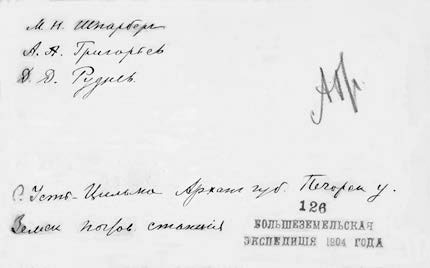 М. Н. Шпарберг
А. А. Григорьев
Д. Д. Руднев
с. Усть-Цильма Арханг губ. Печорск у.
Земск почтов станция
126
БОЛЬШЕЗЕМЕЛЬСКАЯ
ЭКСПЕДИЦІЯ 1904 ГОДА